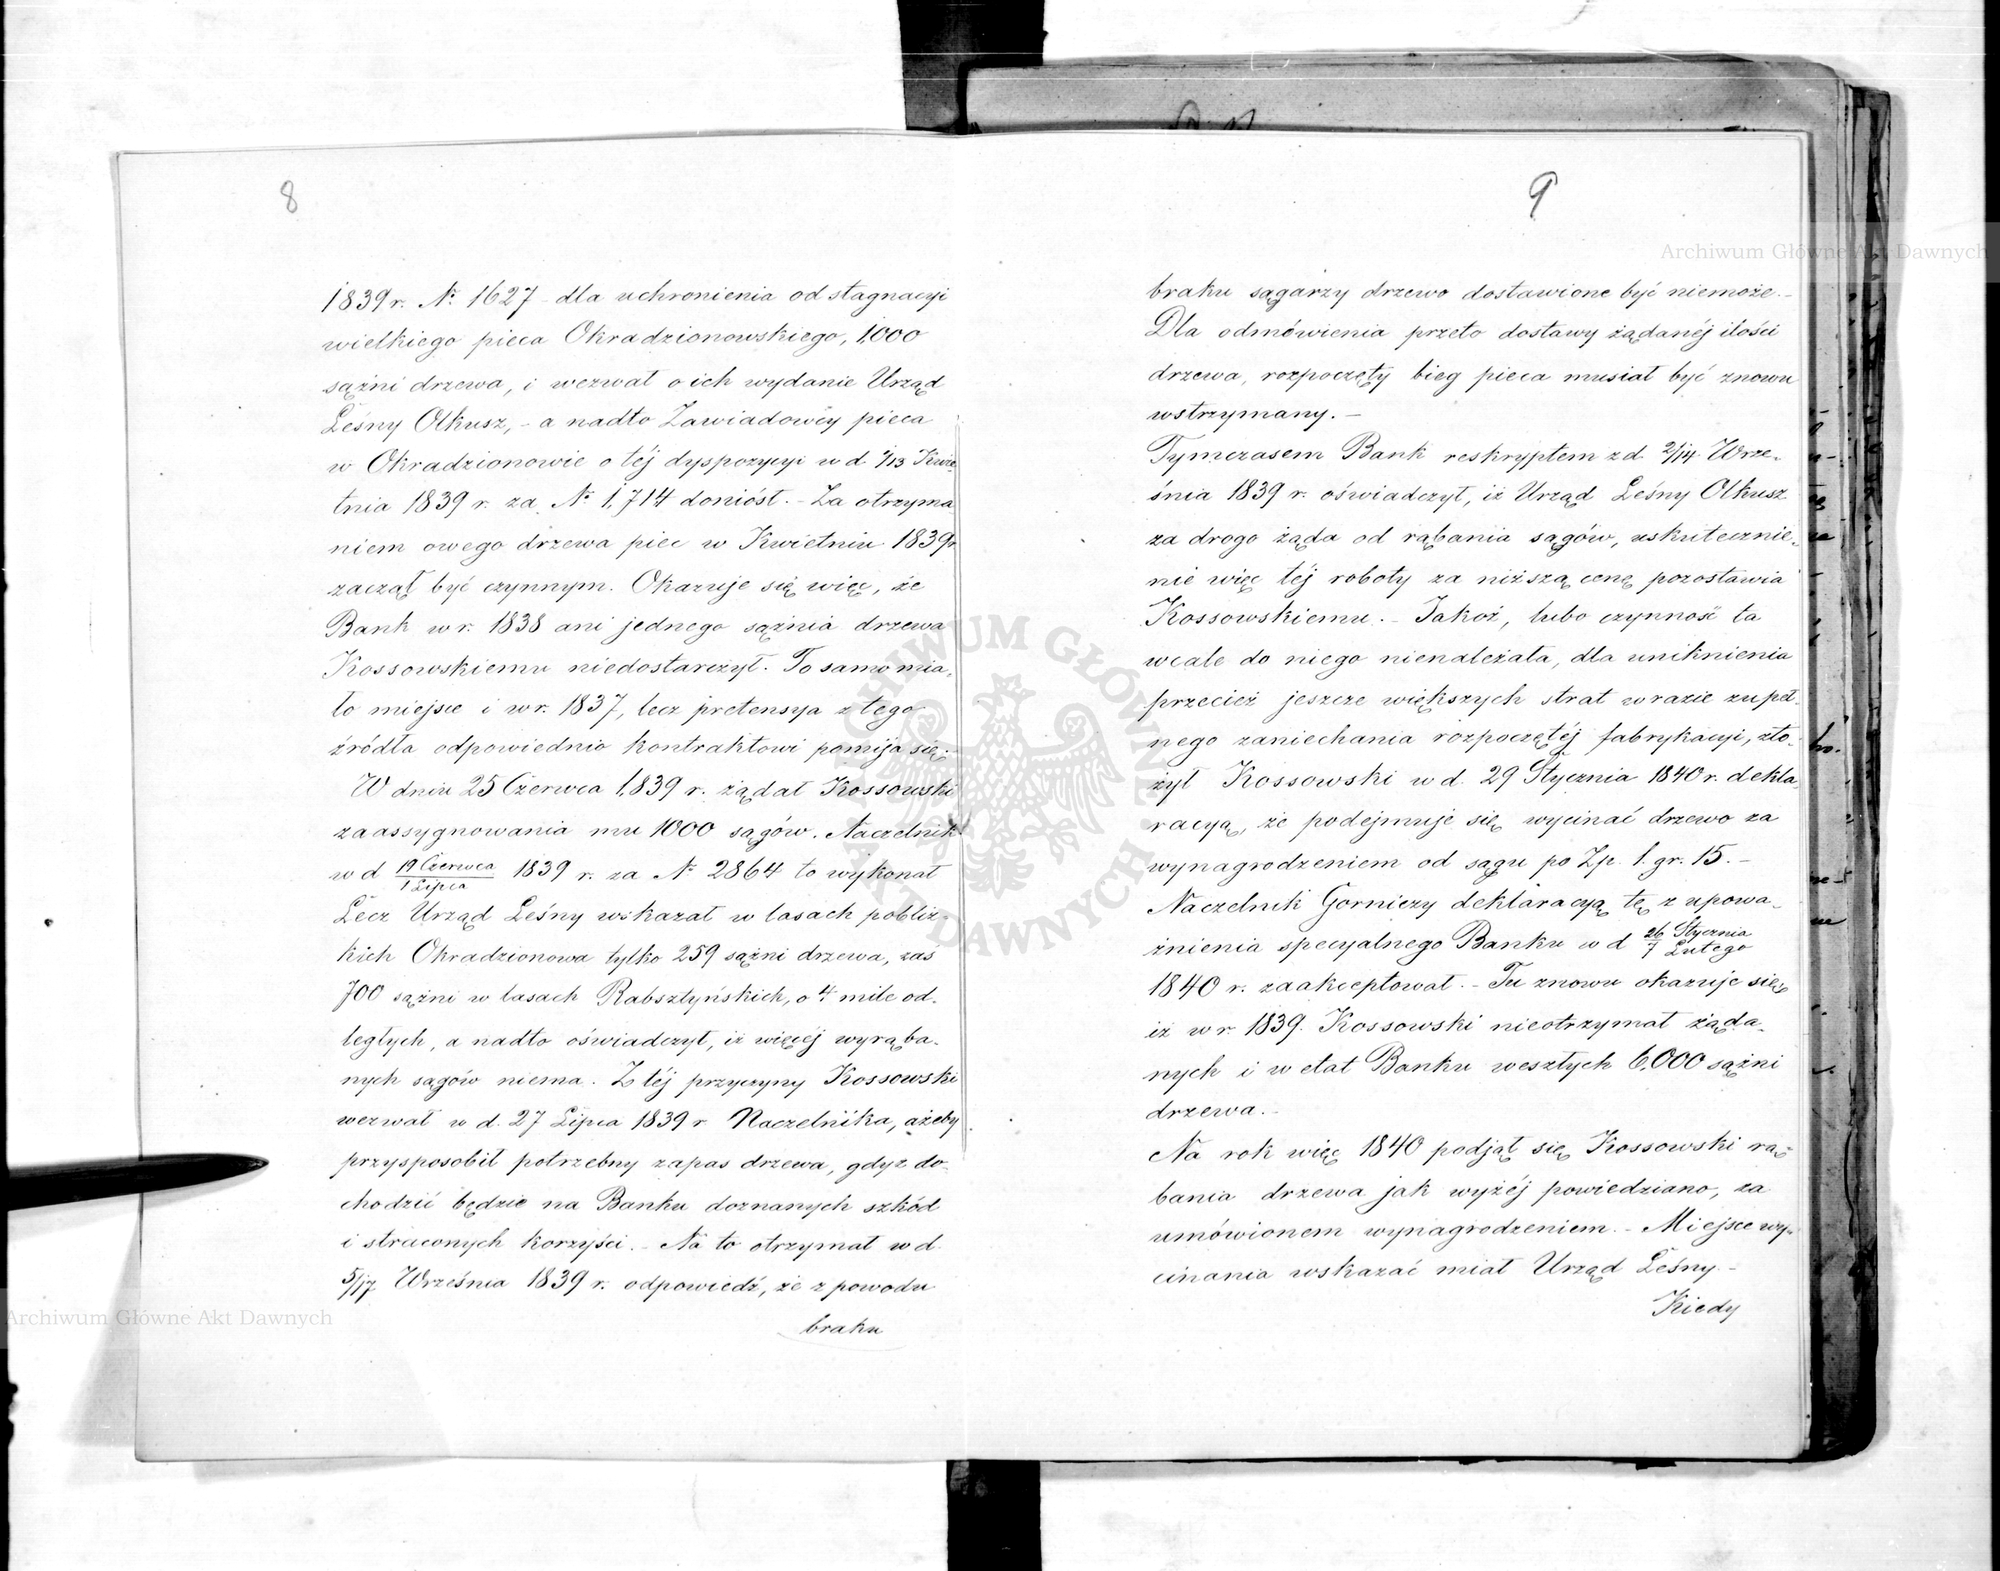 8
1839 r. № 1627 – dla uchronienia od stagnacyi
wielkiego pieca Okradzionowskiego, 1,000
sążni drzewa, i wezwał o ich wydanie Urząd
Leśny Olkusz, – a nadto Zawiadowcy pieca
w Okradzionowie o téj dyspozycyi w d. 1/13 Kwie
tnia 1839 r. za № 1,714 doniósł. – Za otrzyma
niem owego drzewa piec w Kwietniu 1839 r.
zaczął być czynnym. Okazuje się więc, że
Bank w r. 1838 ani jednego sążnia drzewa
Kossowskiemu niedostarczył. To samo mia,
ło miejsce i w r. 1837, lecz pretensya z tego
źródła odpowiednio kontraktowi pomija się. –
W dniu 25 Czerwca 1,839 r. żądał Kossowski
zaassygnowania mu 1000 sągów. Naczelnik
w d 19 Czerwca/1 Lipca 1839 r. za № 2864 to wykonał
Lecz Urząd Leśny wskazał w lasach pobliz-
kich Okradzionowa tylko 259 sążni drzewa, zaś
700 sążni w lasach Rabsztyńskich, o 4 mile od.
ległych, a nadto oświadczył, iż więcéj wyrąba.
nych sągów niema. Z téj przyczyny Kossowski
wezwał w d. 27 Lipca 1839 r Naczelnika, ażeby
przysposobił potrzebny zapas drzewa, gdyż do-
chodzić będzie na Banku doznanych szkód
i straconych korzyści. – Na to otrzymał w d.
5/17 Września 1839 r. odpowiedź, że z powodu
braku
9
braku sągarzy drzewo dostawione być niemoże. –
Dla odmówienia przeto dostawy żądanéj ilości
drzewa, rozpoczęty bieg pieca musiał być znowu
wstrzymany. –
Tymczasem Bank reskryptem z d. 2/14 Wrze-
śnia 1839 r. oświadczył, iż Urząd Leśny Olkusz
za drogo żąda od rąbania sągów, uskutecznie-
nie więc téj roboty za niższą cenę pozostawia
Kossowskiemu. – Jakoż, lubo czynność ta
wcale do niego nienależała, dla uniknienia
przecież jeszcze większych strat w razie zupeł-
nego zaniechania rozpoczętéj fabrykacyi, zło-
żył Kossowski w d. 29 Stycznia 1840 r. dekla,
racyą, że podejmuje się wycinać drzewo za
wynagrodzeniem od sągu po Zp. 1. gr. 15. –
Naczelnik Gorniczy deklaracyą tę z upowa-
żnienia specyalnego Banku w d 26 Stycznia/7 Lutego
1840 r. zaakceptował. – Tu znowu okazuje się,
iż w r. 1839. Kossowski nieotrzymał żąda-
nych i w etat Banku weszłych 6,000 sążni
drzewa. –
Na rok więc 1840 podjął się Kossowski rą-
bania drzewa jak wyżéj powiedziano, za
umówionem wynagrodzeniem. – Miejsce wy-
cinania wskazać miał Urząd Leśny –
Kiedy
Archiwum Główne Akt Dawnych
Archiwum Główne Akt Dawnych
ARCHIWUM GŁÓWNE AKT DAWNYCH